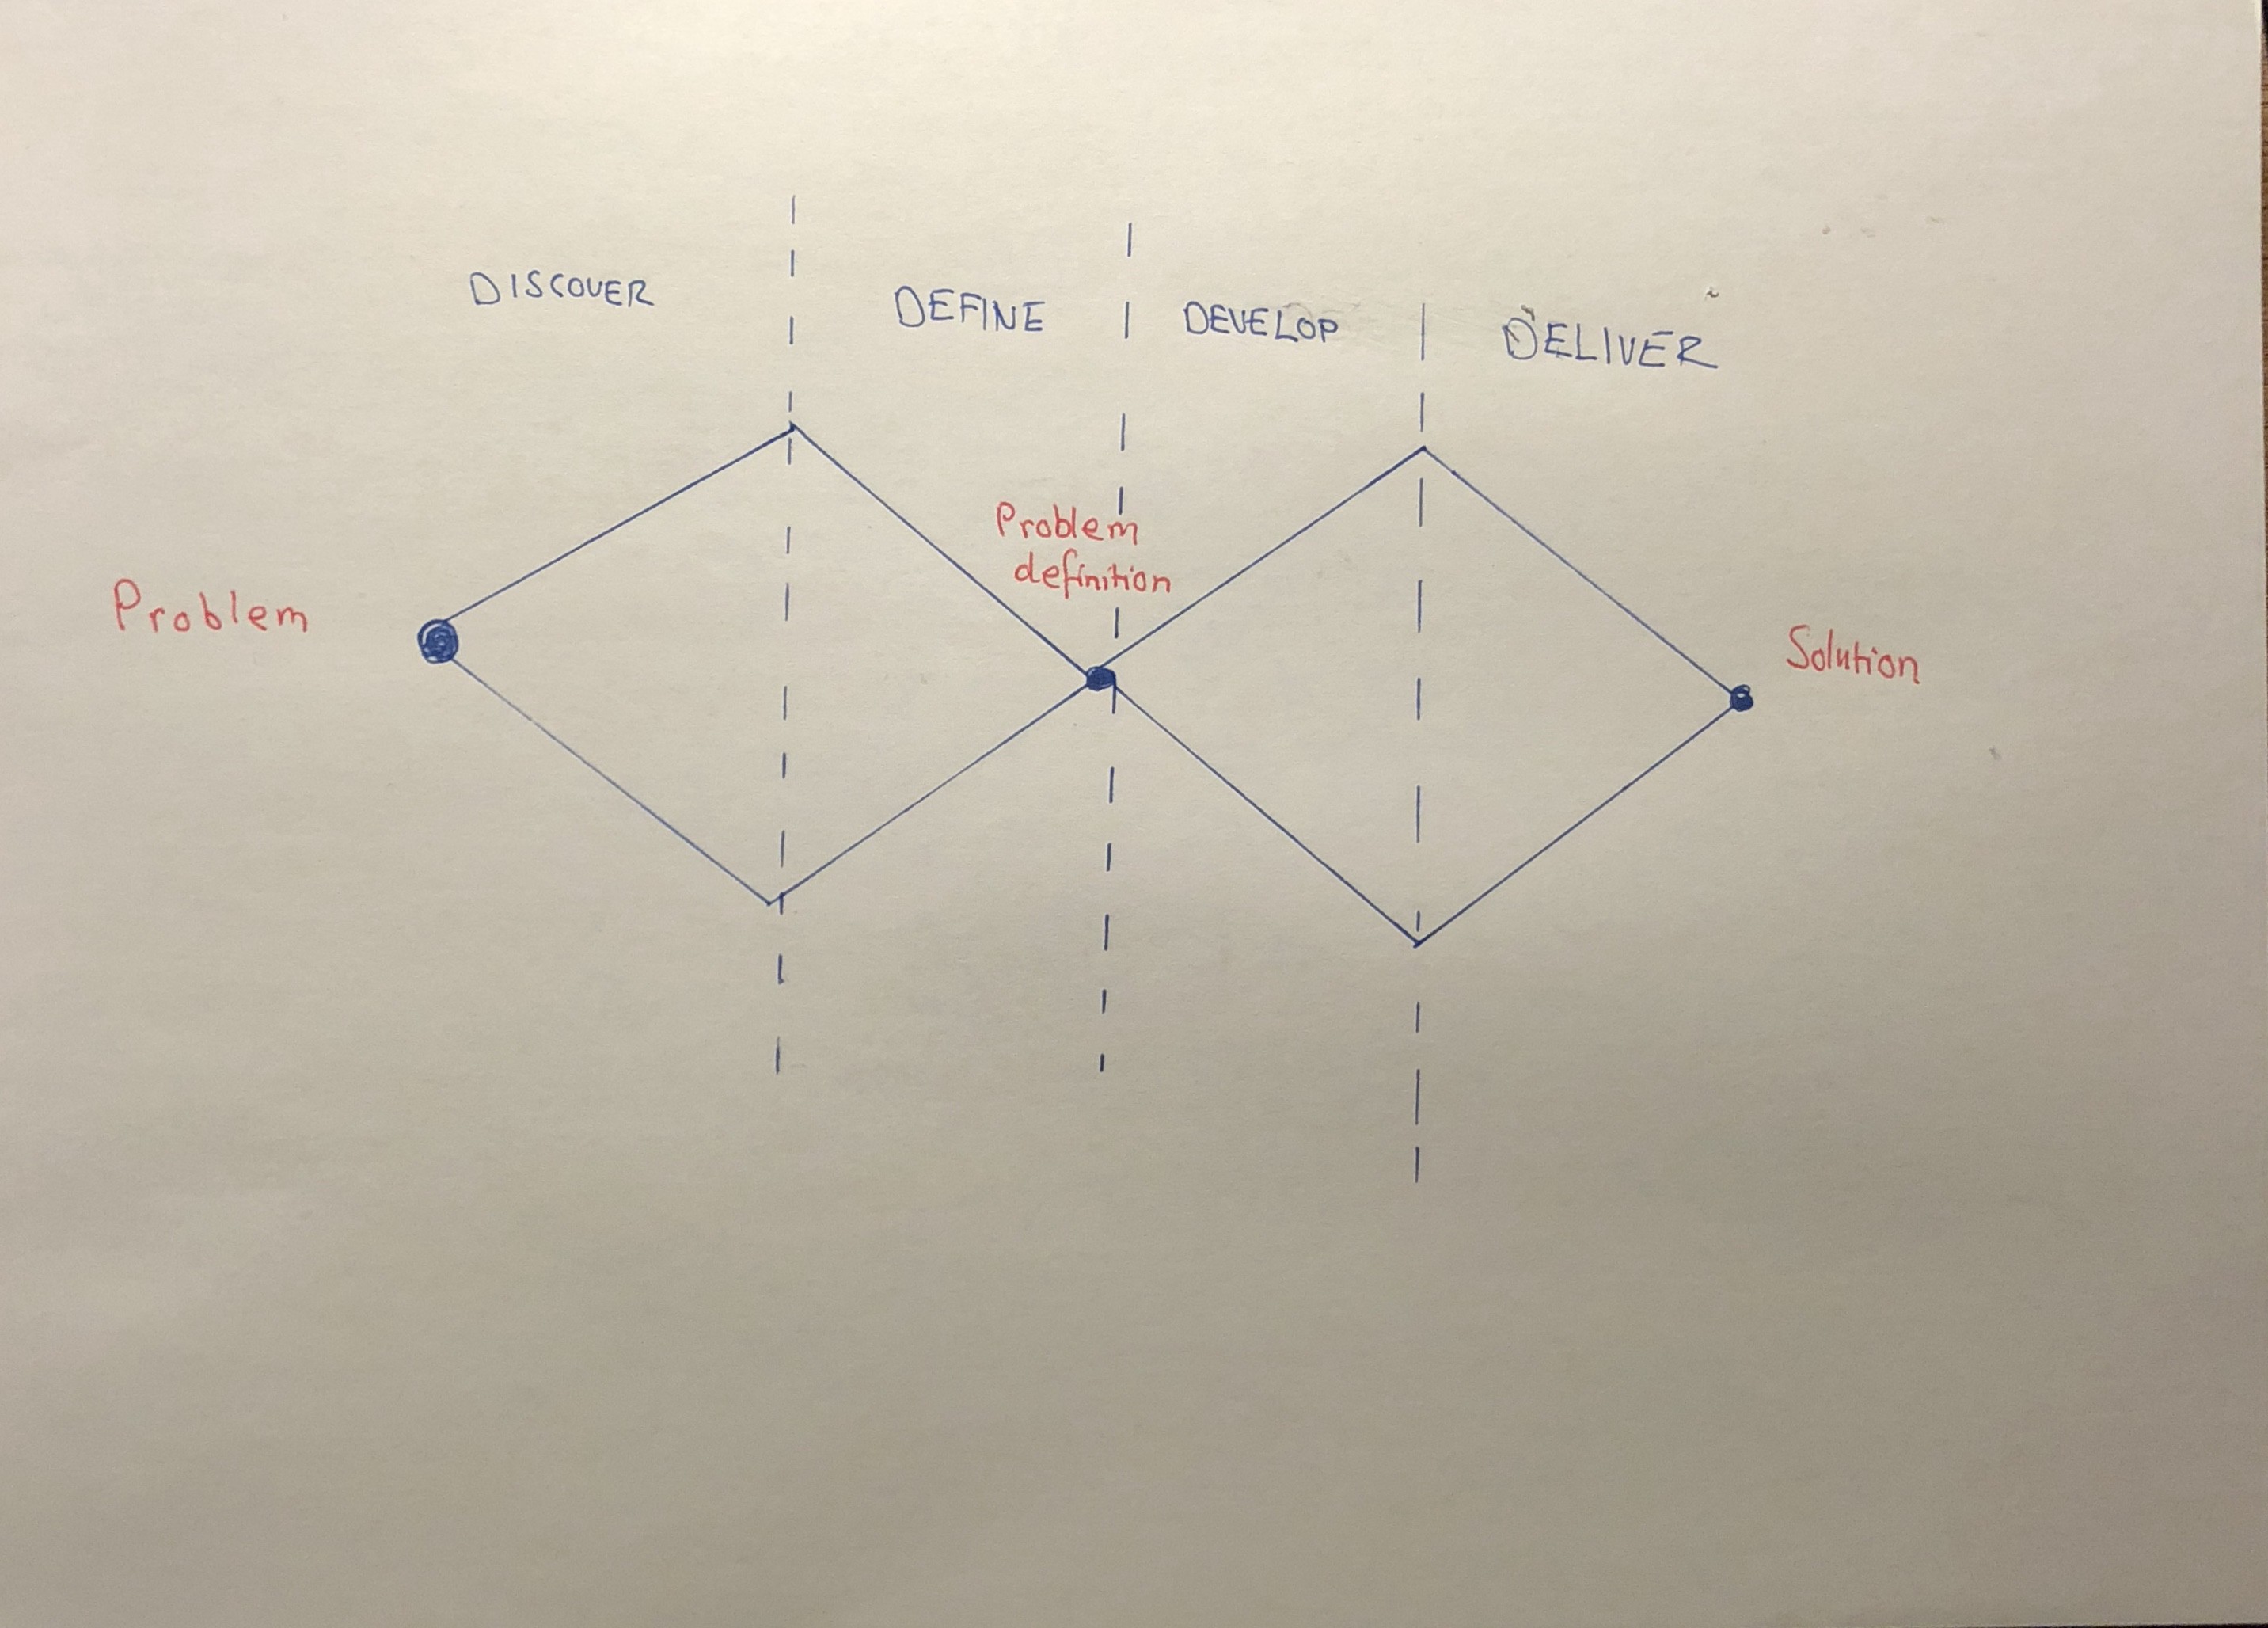 DISCOVER
DEFINE
DEVELOP
DELIVER
Problem
Problem
definition
Solution